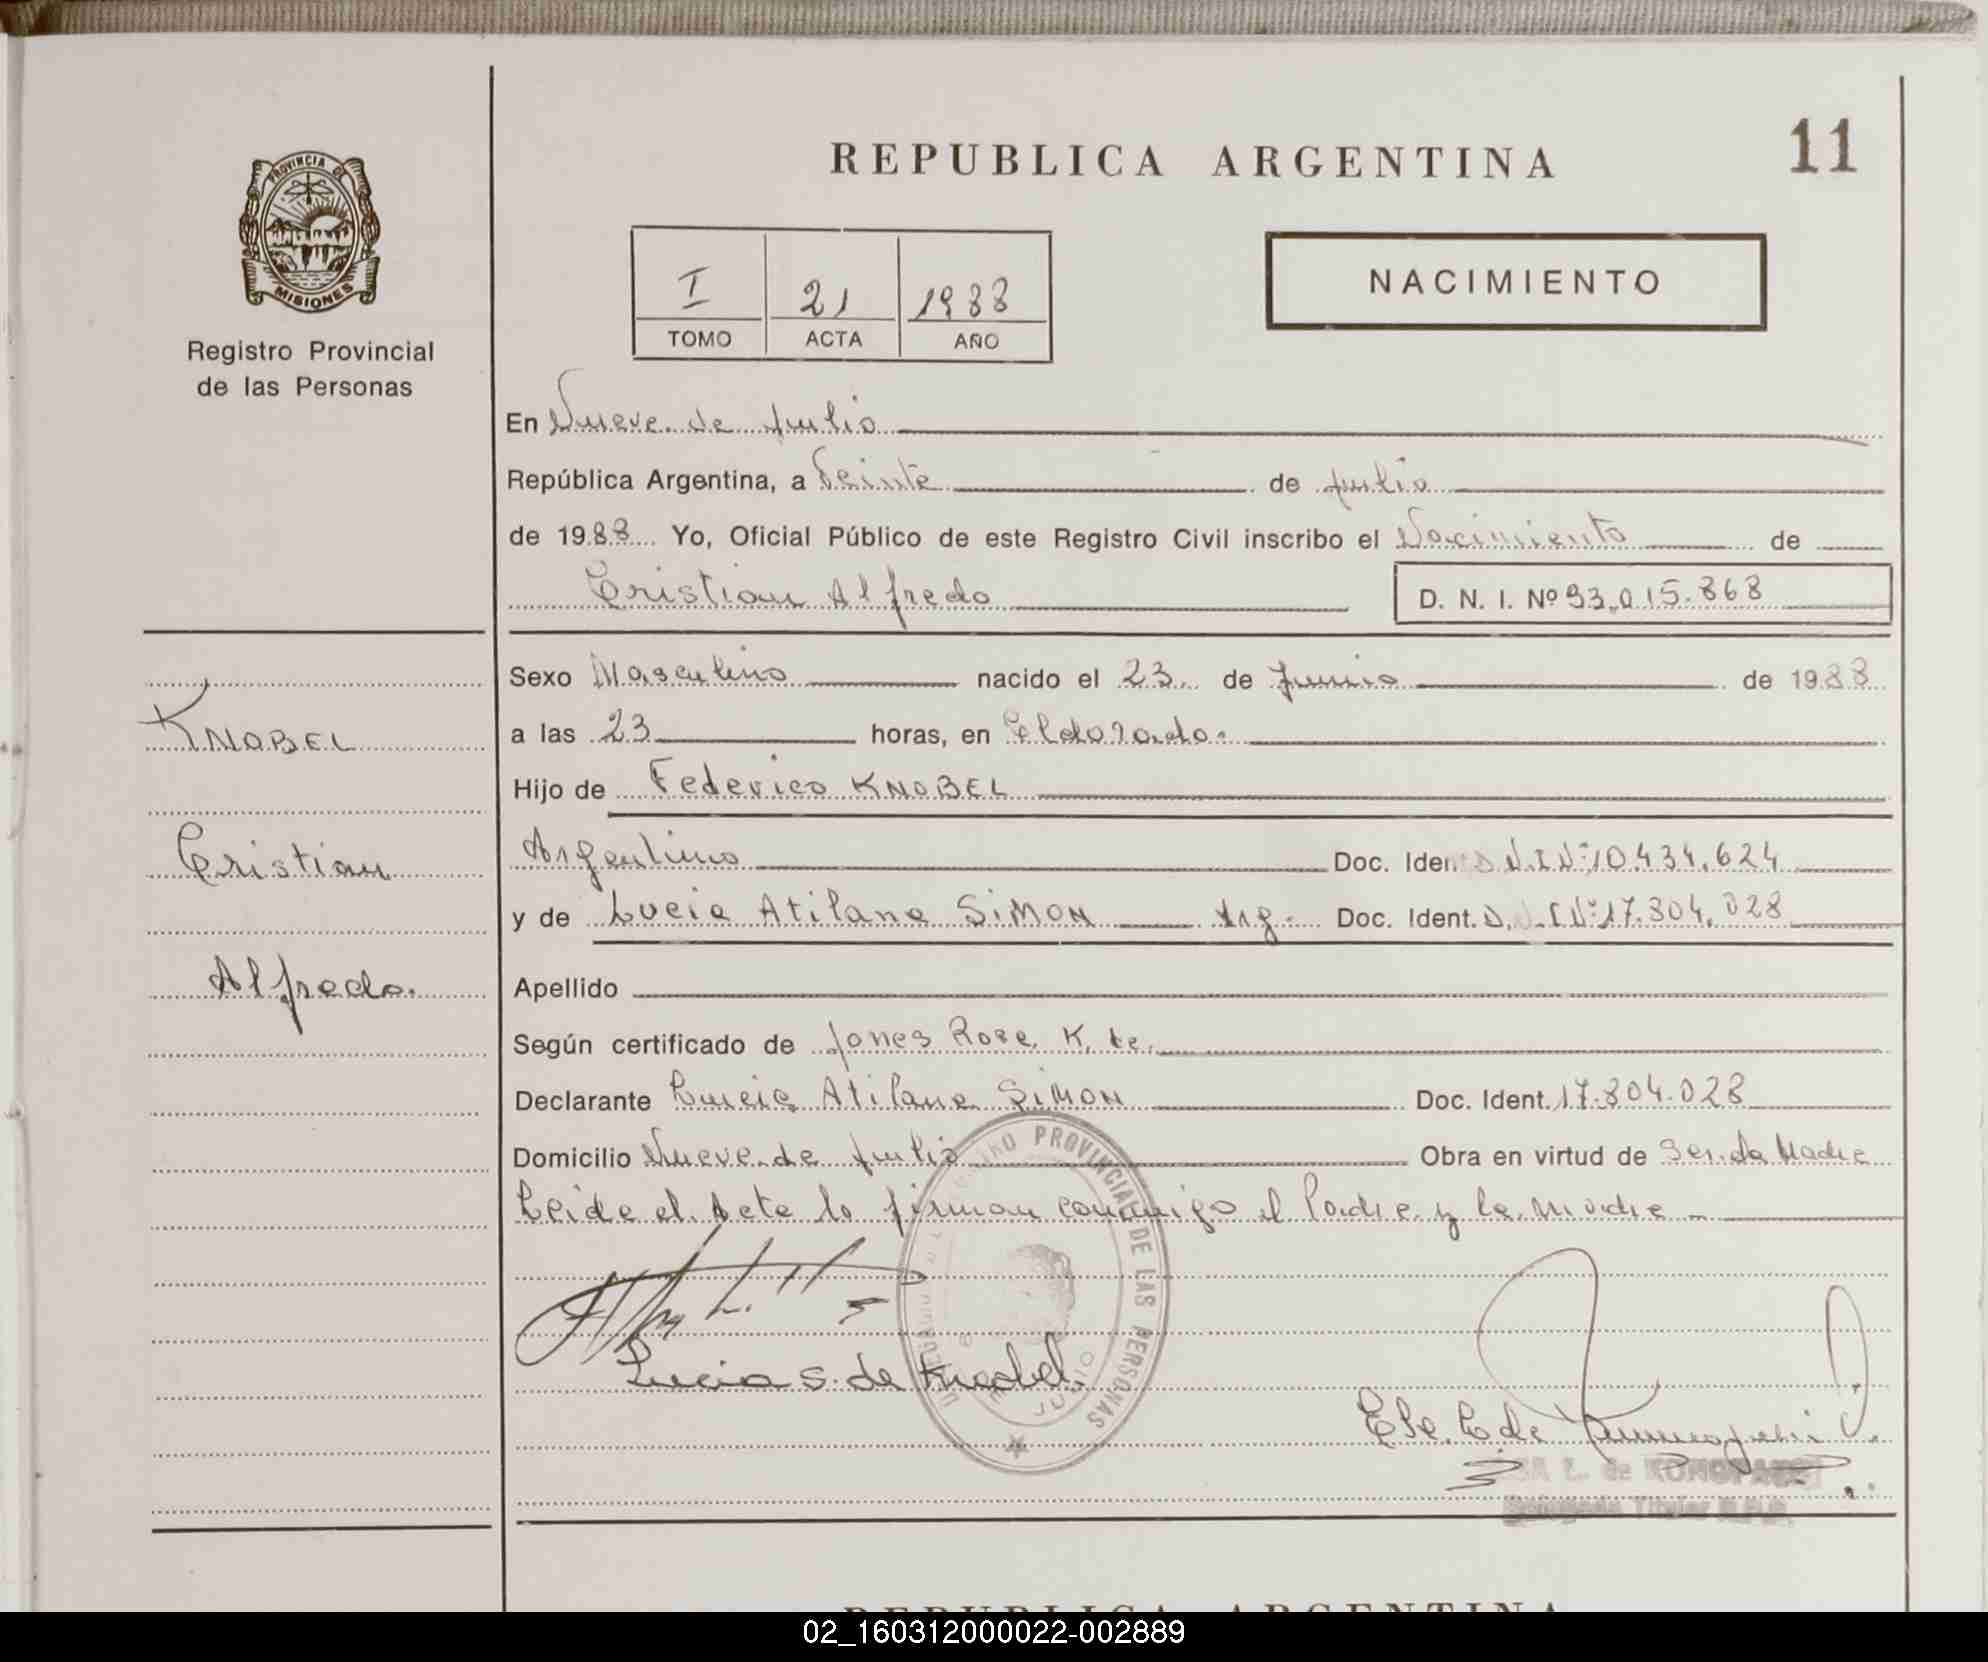 REPUBLICA ARGENTINA
11
PROVINCIA DE
MISIONES
Registro Provincial
de las Personas
I 21 1988
TOMO ACTA AÑO
NACIMIENTO
En Nueve de Julio
República Argentina, a Veinte de Julio
de 1988 Yo, Oficial Público de este Registro Civil inscribo el Nacimiento de
Cristian Alfredo D. N. I. Nº 93.015.868
Sexo Masculino nacido el 23 de Junio de 1988
KNOBEL
a las 23 horas, en Eldorado.
Hijo de Federico KNOBEL
Cristian
Argentino Doc. Ident. D.N.I Nº 10.434.624
y de Lucia Atilana SIMON Arg. Doc. Ident. D.N.I Nº 17.804.028
Alfredo.
Apellido
Según certificado de Jones Rosa K. de
Declarante Lucia Atilana SIMON Doc. Ident. 17.804.028
Domicilio Nueve de Julio Obra en virtud de Ser la Madre
Leida el Acta la firman conmigo el Padre y la madre
PROVINCIAL DE LAS PERSONAS
JULIO
Lucia S. de Knobel
de
L. de
Titular
REPUBLICA ARGENTINA
02_160312000022-002889